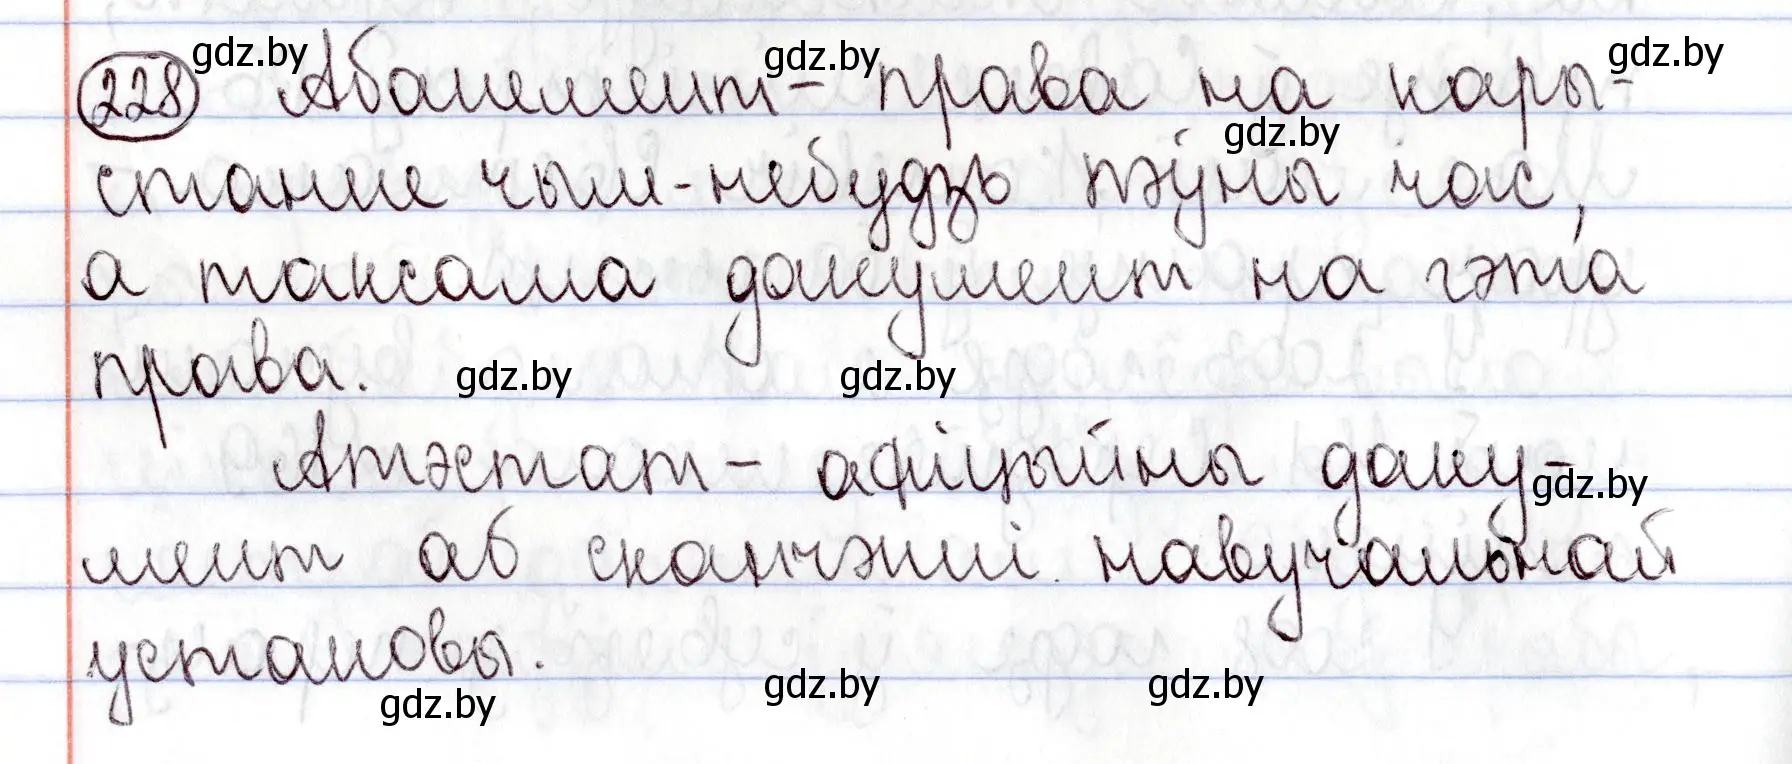 228 Абанемент – права на кары-
станне чым-небудзь пэўны час,
а таксама дакумент на гэта
права.
Атэстат – афіцыйны даку-
мент аб сканчэнні навучальнай
установы.
gdz.by
gdz.by
gdz.by
gdz.by
gdz.by
gdz.by
gdz.by
gdz.by
gdz.by
gdz.by